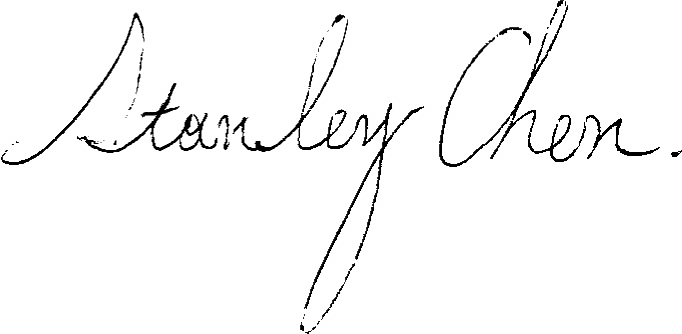 Stanley Chen.